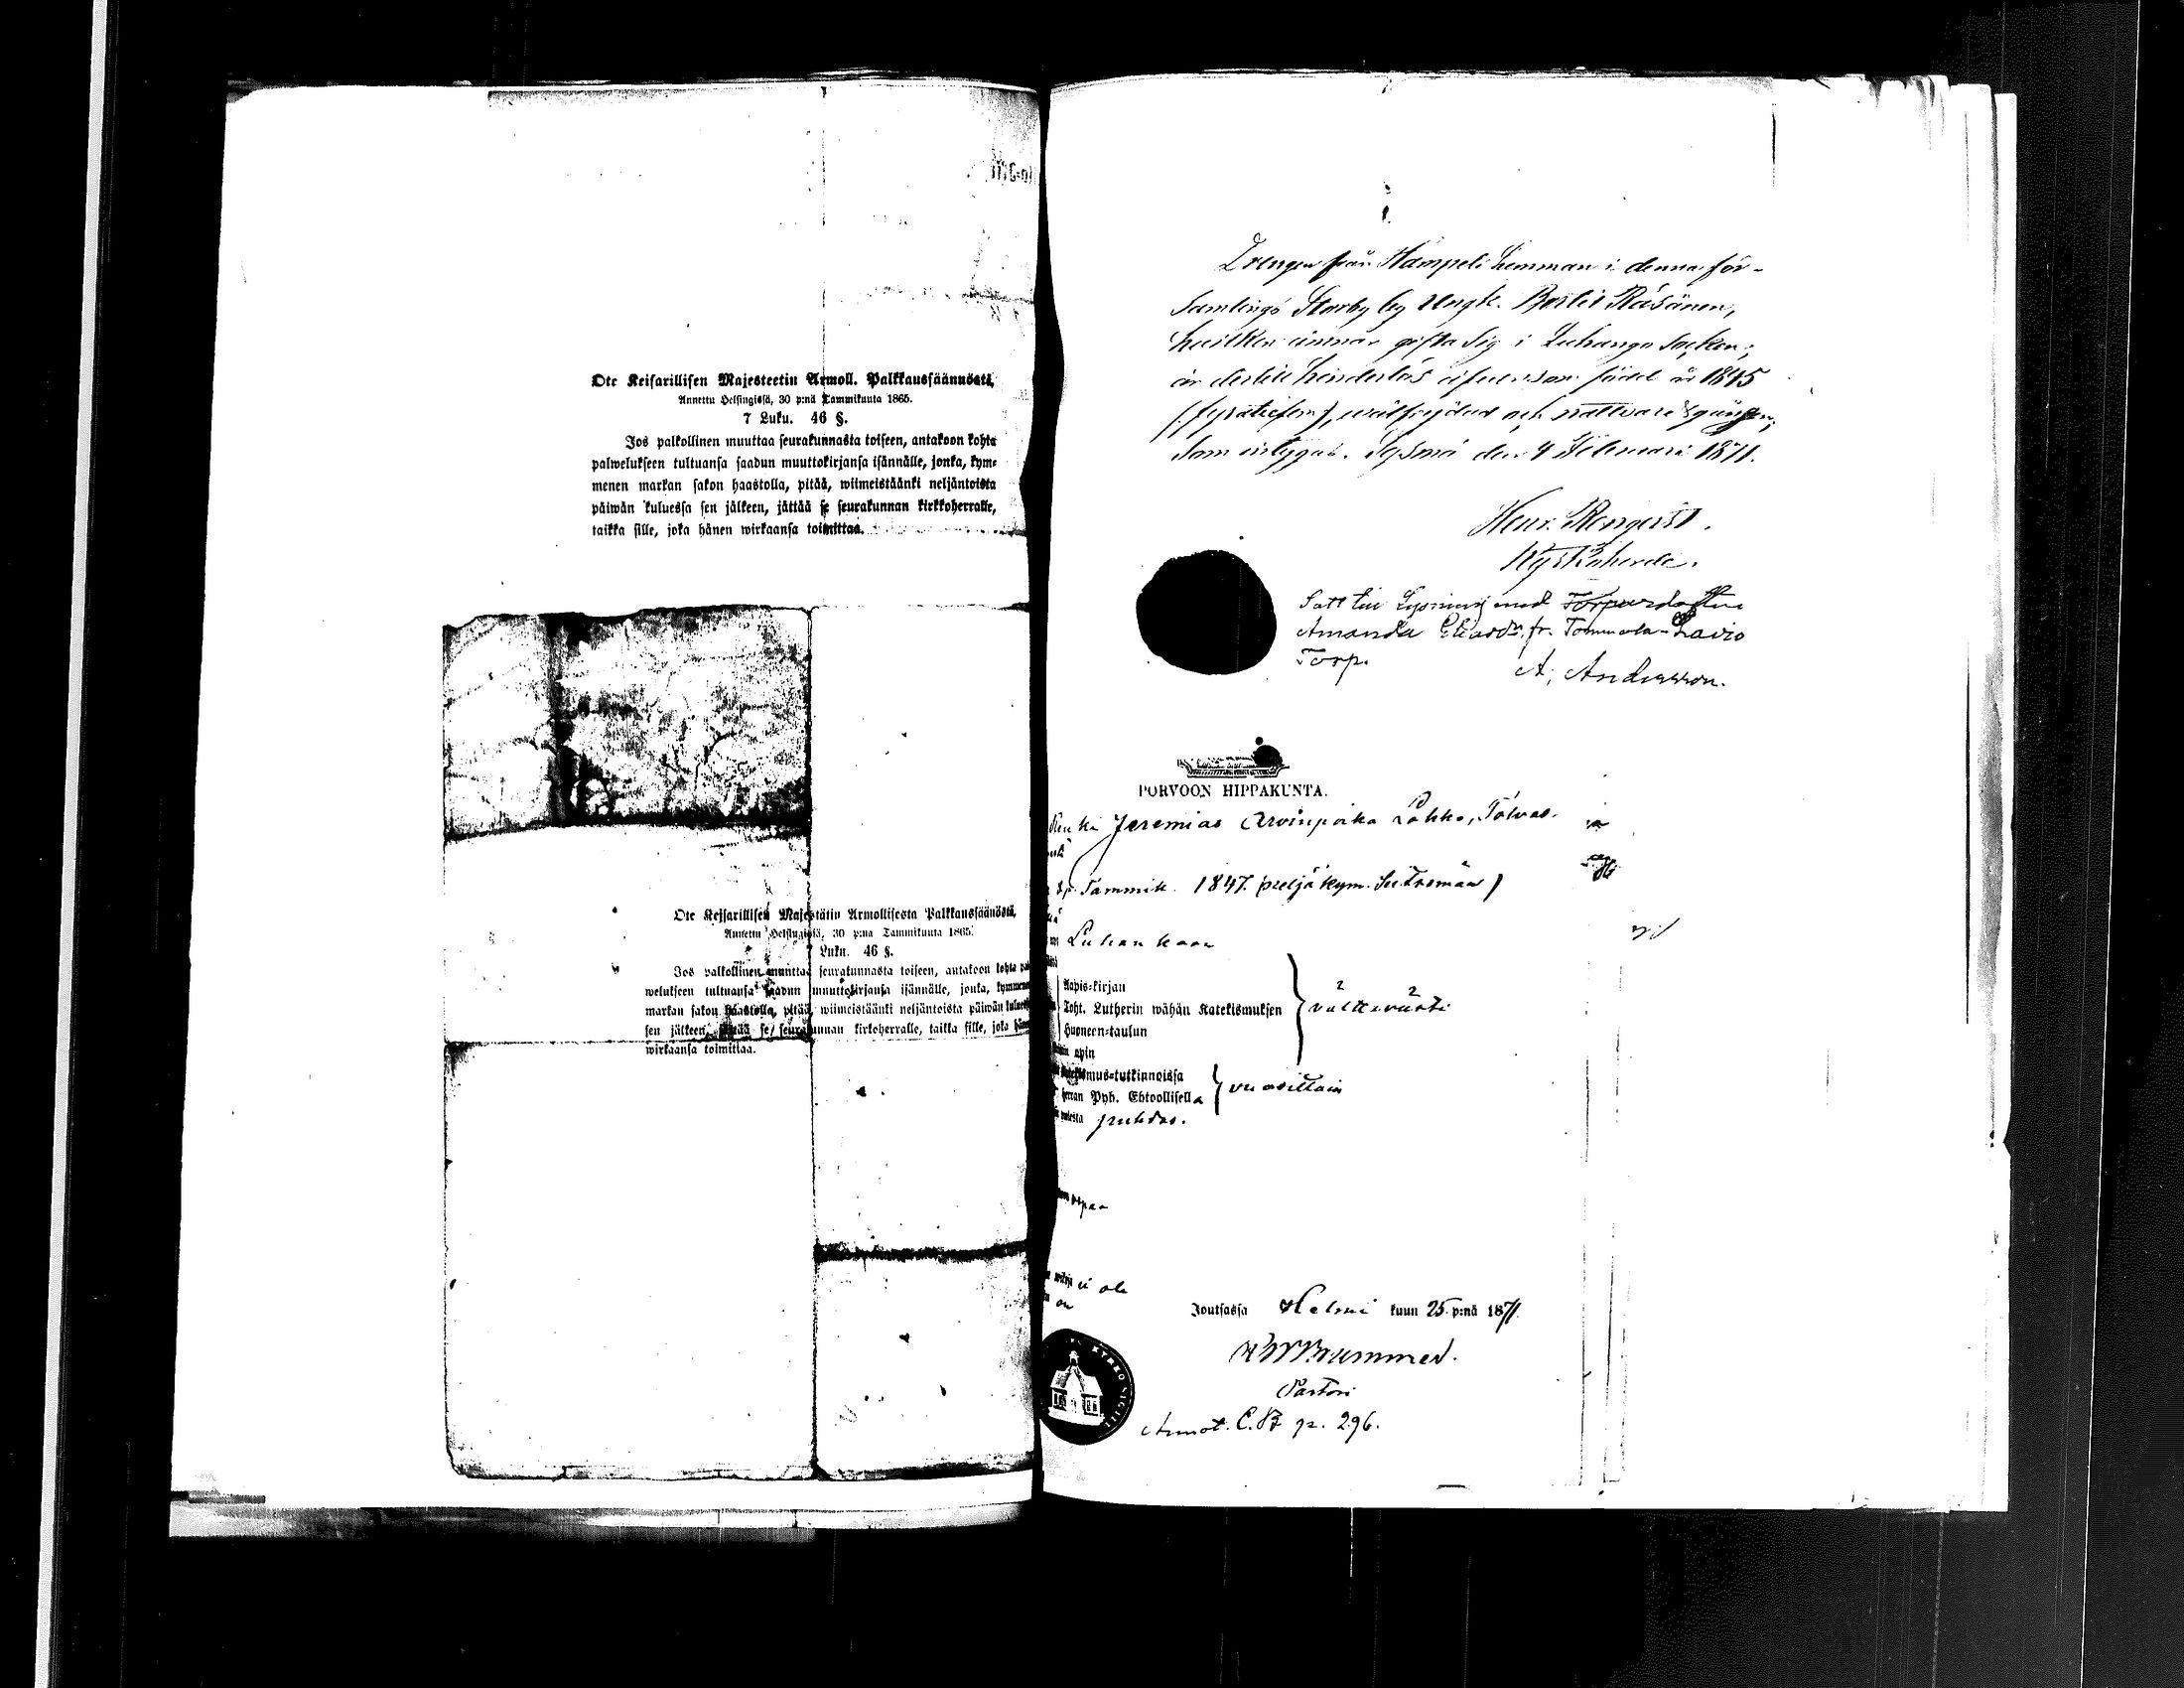 Ote Keisarillisen Majesteetin Armoll. Palkkaussäännöstä,
Annettu Helsingissä, 30 p:nä Tammikuuta 1865.
7 Luku. 46 §.
Jos palkollinen muuttaa seurakunnasta toiseen, antakoon kohta
palwelukseen tultuansa saadun muuttokirjansa isännälle, jonka, kym-
menen markan sakon haastolla, pitää, wiimeistäänki neljäntoista
päiwän kuluessa sen jälkeen, jättää se seurakunnan kirkkoherralle,
taikka sille, joka hänen wirkaansa toimittaa.
Ote Keisarillisen Majestätin Armollisesta Palkkaussäänöstä,
Annettu Helsingissä, 30 p:nä Tammikuuta 1865.
7 Luku. 46 §.
Jos palkollinen muuttaa seurakunnasta toiseen, antakoon kohta pal-
welukseen tultuansa saadun muuttokirjansa isännälle, jonka, kymmenen
markan sakon haastolla, pitää, wiimeistäänki neljäntoista päiwän kulues-
sen jälkeen, jättää se seurakunnan kirkoherralle, taikka sille, joka hänen
wirkaansa toimittaa.
Drengen från Hämpeli hemman i denna för-
samlings Storby by Ungk. Bertil Räsänen,
hvilken ämnar gifta sig i Luhango socken;
är dertill hinderlös född år 1845
(fyratiofem), wälfrejdad och nattvardsgången;
som intygas. Sysmä den 4 Februari 1871.
Henr. Rongelst.
Kyrkoherde.
Satt till Lysning med Torpardottren
Amanda fr. Tommola-Lavio
Torp.
A. Andersson.
PORVOON HIPPAKUNTA.
Renki Jeremias Arvinpoika Lahko,
Tammik. 1847. (neljäkym. seitsemän)
Luhankaan
Aapis-kirjan
Toht. Lutherin wähän Katekismuksen
Huoneen-taulun
välttävästi
opin
Katekismus-tutkinnoissa
Herran Pyh. Ehtoollisella
vuosittain
puolesta puhdas.
vapaa
ei ole
on
Joutsassa Helmi kuun 25 p:nä 1871.
Brummer.
Pastori
KYRKO SIGILL
Annot. C.B. p. 296.